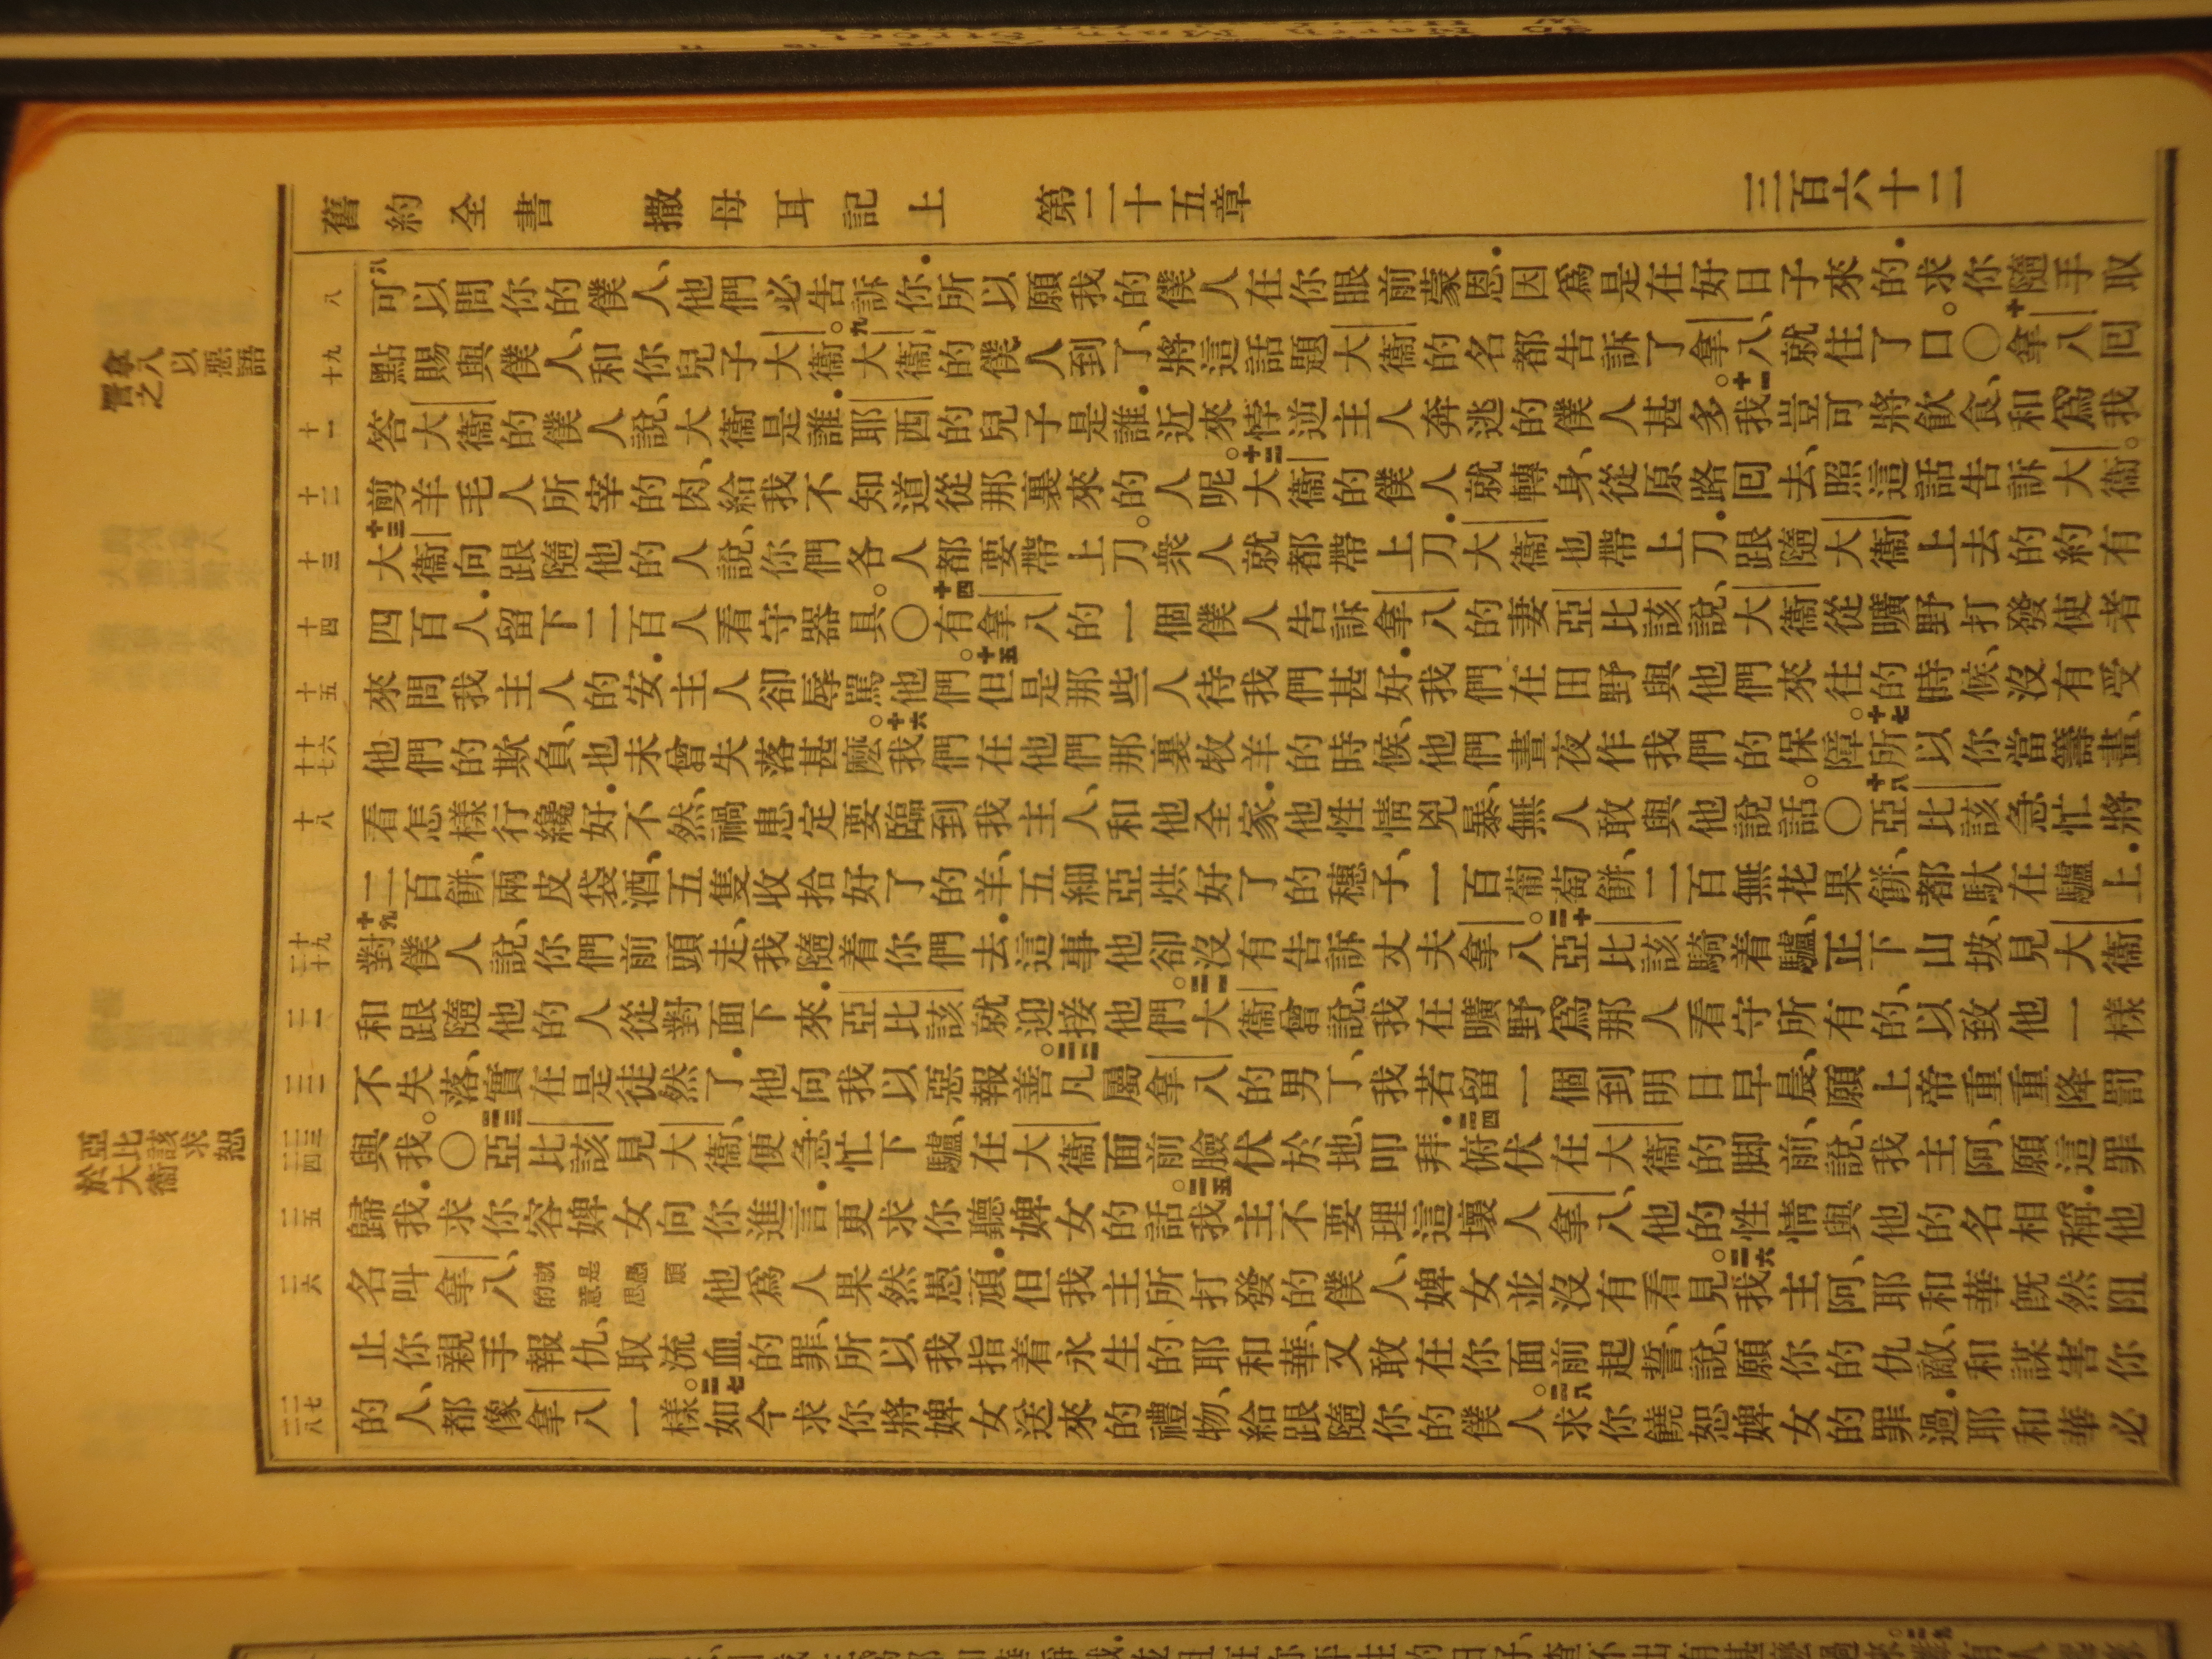 舊約全書 撒母耳記上 第二十五章 三百六十二
八
可以問你的僕人、他們必告訴你．所以願我的僕人在你眼前蒙恩．因爲是在好日子來的．求你隨手取
十九
點賜與僕人、和你兒子大衞。九大衞的僕人到了、將這話題大衞的名都告訴了拿八、就住了口。〇十拿八囘
十一
答大衞的僕人說、大衞是誰．耶西的兒子是誰．近來悖逆主人奔逃的僕人甚多。十一我豈可將飲食、和爲我
十二
剪羊毛人所宰的肉、給我不知道從那裏來的人呢。十二大衞的僕人就轉身、從原路囘去、照這話告訴大衞。
十三
十三大衞向跟隨他的人說、你們各人都要帶上刀。衆人就都帶上刀．大衞也帶上刀．跟隨大衞上去的約有
十四
四百人．留下二百人看守器具。〇十四有拿八的一個僕人告訴拿八的妻亞比該說、大衞從曠野打發使者
十五
來問我主人的安．主人卻辱駡他們。十五但是那些人待我們甚好．我們在田野與他們來往的時候、沒有受
十六
十七
他們的欺負、也未曾失落甚麽。十六我們在他們那裏牧羊的時候、他們晝夜作我們的保障。十七所以你當籌畫、
十八
看怎樣行纔好．不然、禍患定要臨到我主人、和他全家．他性情兇暴、無人敢與他說話。〇十八亞比該急忙將
二百餅、兩皮袋酒、五隻收拾好了的羊、五細亞烘好了的穗子、一百葡萄餅、二百無花果餅、都馱在驢上．
十九
二十
十九對僕人說、你們前頭走、我隨着你們去．這事他卻沒有告訴丈夫拿八。二十亞比該騎着驢、正下山坡、見大衞
二一
和跟隨他的人從對面下來．亞比該就迎接他們。二一大衞曾說、我在曠野爲那人看守所有的、以致他一樣
二二
不失落、實在是徒然了．他向我以惡報善。二二凡屬拿八的男丁、我若留一個到明日早晨、願上帝重重降罰
二三
二四
與我。〇二三亞比該見大衞、便急忙下驢、在大衞面前臉伏於地、叩拜．二四俯伏在大衞的脚前、說、我主阿、願這罪
二五
歸我．求你容婢女向你進言．更求你聽婢女的話。二五我主不要理這壞人拿八、他的性情與他的名相稱．他
二六
名叫拿八、就是愚頑的意思他爲人果然愚頑．但我主所打發的僕人、婢女並沒有看見。二六我主阿、耶和華旣然阻
止你親手報仇、取流血的罪、所以我指着永生的耶和華、又敢在你面前起誓、說、願你的仇敵、和謀害你
二七
二八
的人、都像拿八一樣。二七如今求你將婢女送來的禮物、給跟隨你的僕人。二八求你饒恕婢女的罪過．耶和華必
拿八以惡語詈之
亞比該求恕於大衞